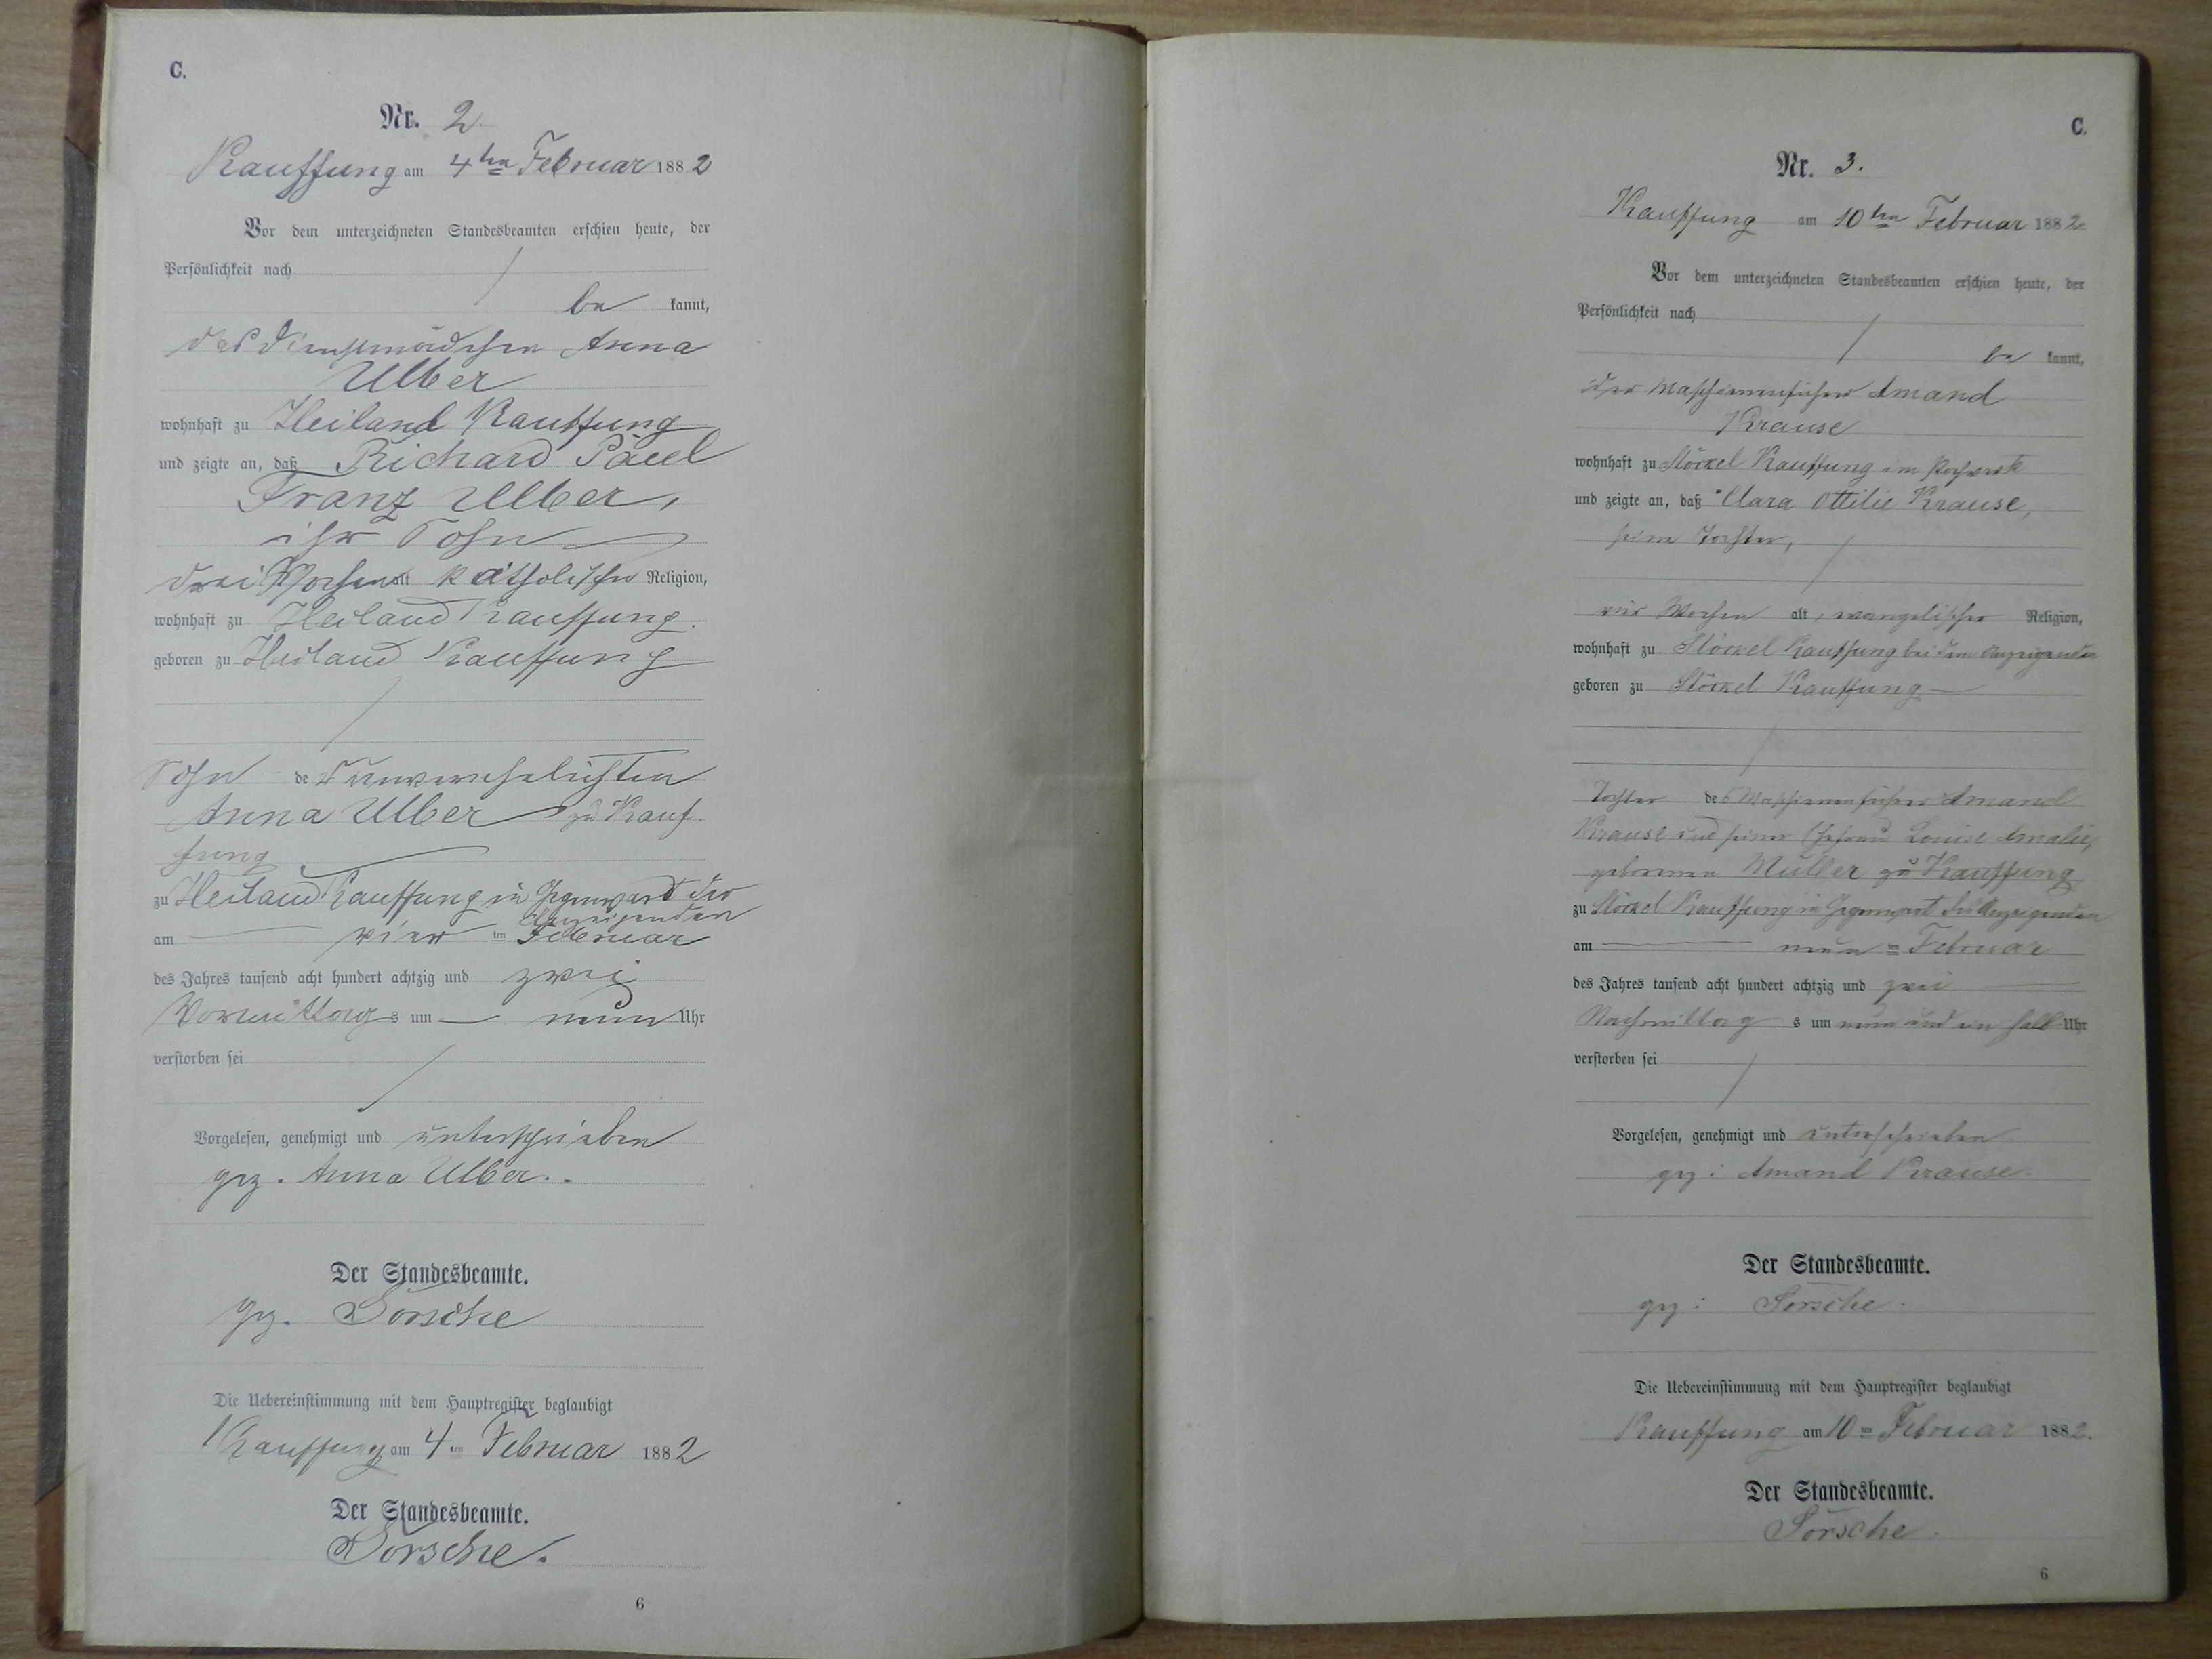 C.
Nr. 2.
Kauffung am 4ten Februar 1882
Vor dem unterzeichneten Standesbeamten erschien heute, der
Persönlichkeit nach
be kannt,
das Dienstmädchen Anna
Ulber
wohnhaft zu Heiland Kauffung
und zeigte an, daß Richard Paul
Franz Ulber,
ihr Sohn
drei Wochen alt katholischer Religion,
wohnhaft zu Heiland Kauffung.
geboren zu Heiland Kauffung
Sohn der unverehelichten
Anna Ulber zu Kauf-
fung
zu Heiland Kauffung in Gegenwart der
Anzeigenden
am vier ten Februar
des Jahres tausend acht hundert achtzig und zwei
Vormittags um neun Uhr
verstorben sei
Vorgelesen, genehmigt und unterschrieben
gez. Anna Ulber.
Der Standesbeamte.
gez. Sorsche
Die Uebereinstimmung mit dem Hauptregister beglaubigt
Kauffung am 4ten Februar 1882
Der Standesbeamte.
Sorsche.
6
C.
Nr. 3.
Kauffung am 10ten Februar 1882
Vor dem unterzeichneten Standesbeamten erschien heute, der
Persönlichkeit nach
be kannt,
der Maschinenführer Amand
Krause
wohnhaft zu Stöckel Kauffung im
und zeigte an, daß Clara Ottilie Krause,
seine Tochter,
vier Wochen alt, evangelischer Religion,
wohnhaft zu Stöckel Kauffung bei dem Anzeigenden
geboren zu Stöckel Kauffung
Tochter des Maschinenführer Amand
Krause und seiner Ehefrau Louise Amalie,
geborenen Müller zu Kauffung
zu Stöckel Kauffung in Gegenwart des Anzeigenden
am neun ten Februar
des Jahres tausend acht hundert achtzig und zwei
Nachmittags um neun und ein halb Uhr
verstorben sei
Vorgelesen, genehmigt und unterschrieben
gez: Amand Krause.
Der Standesbeamte.
gez: Sorsche.
Die Uebereinstimmung mit dem Hauptregister beglaubigt
Kauffung am 10ten Februar 1882.
Der Standesbeamte.
Sorsche.
6